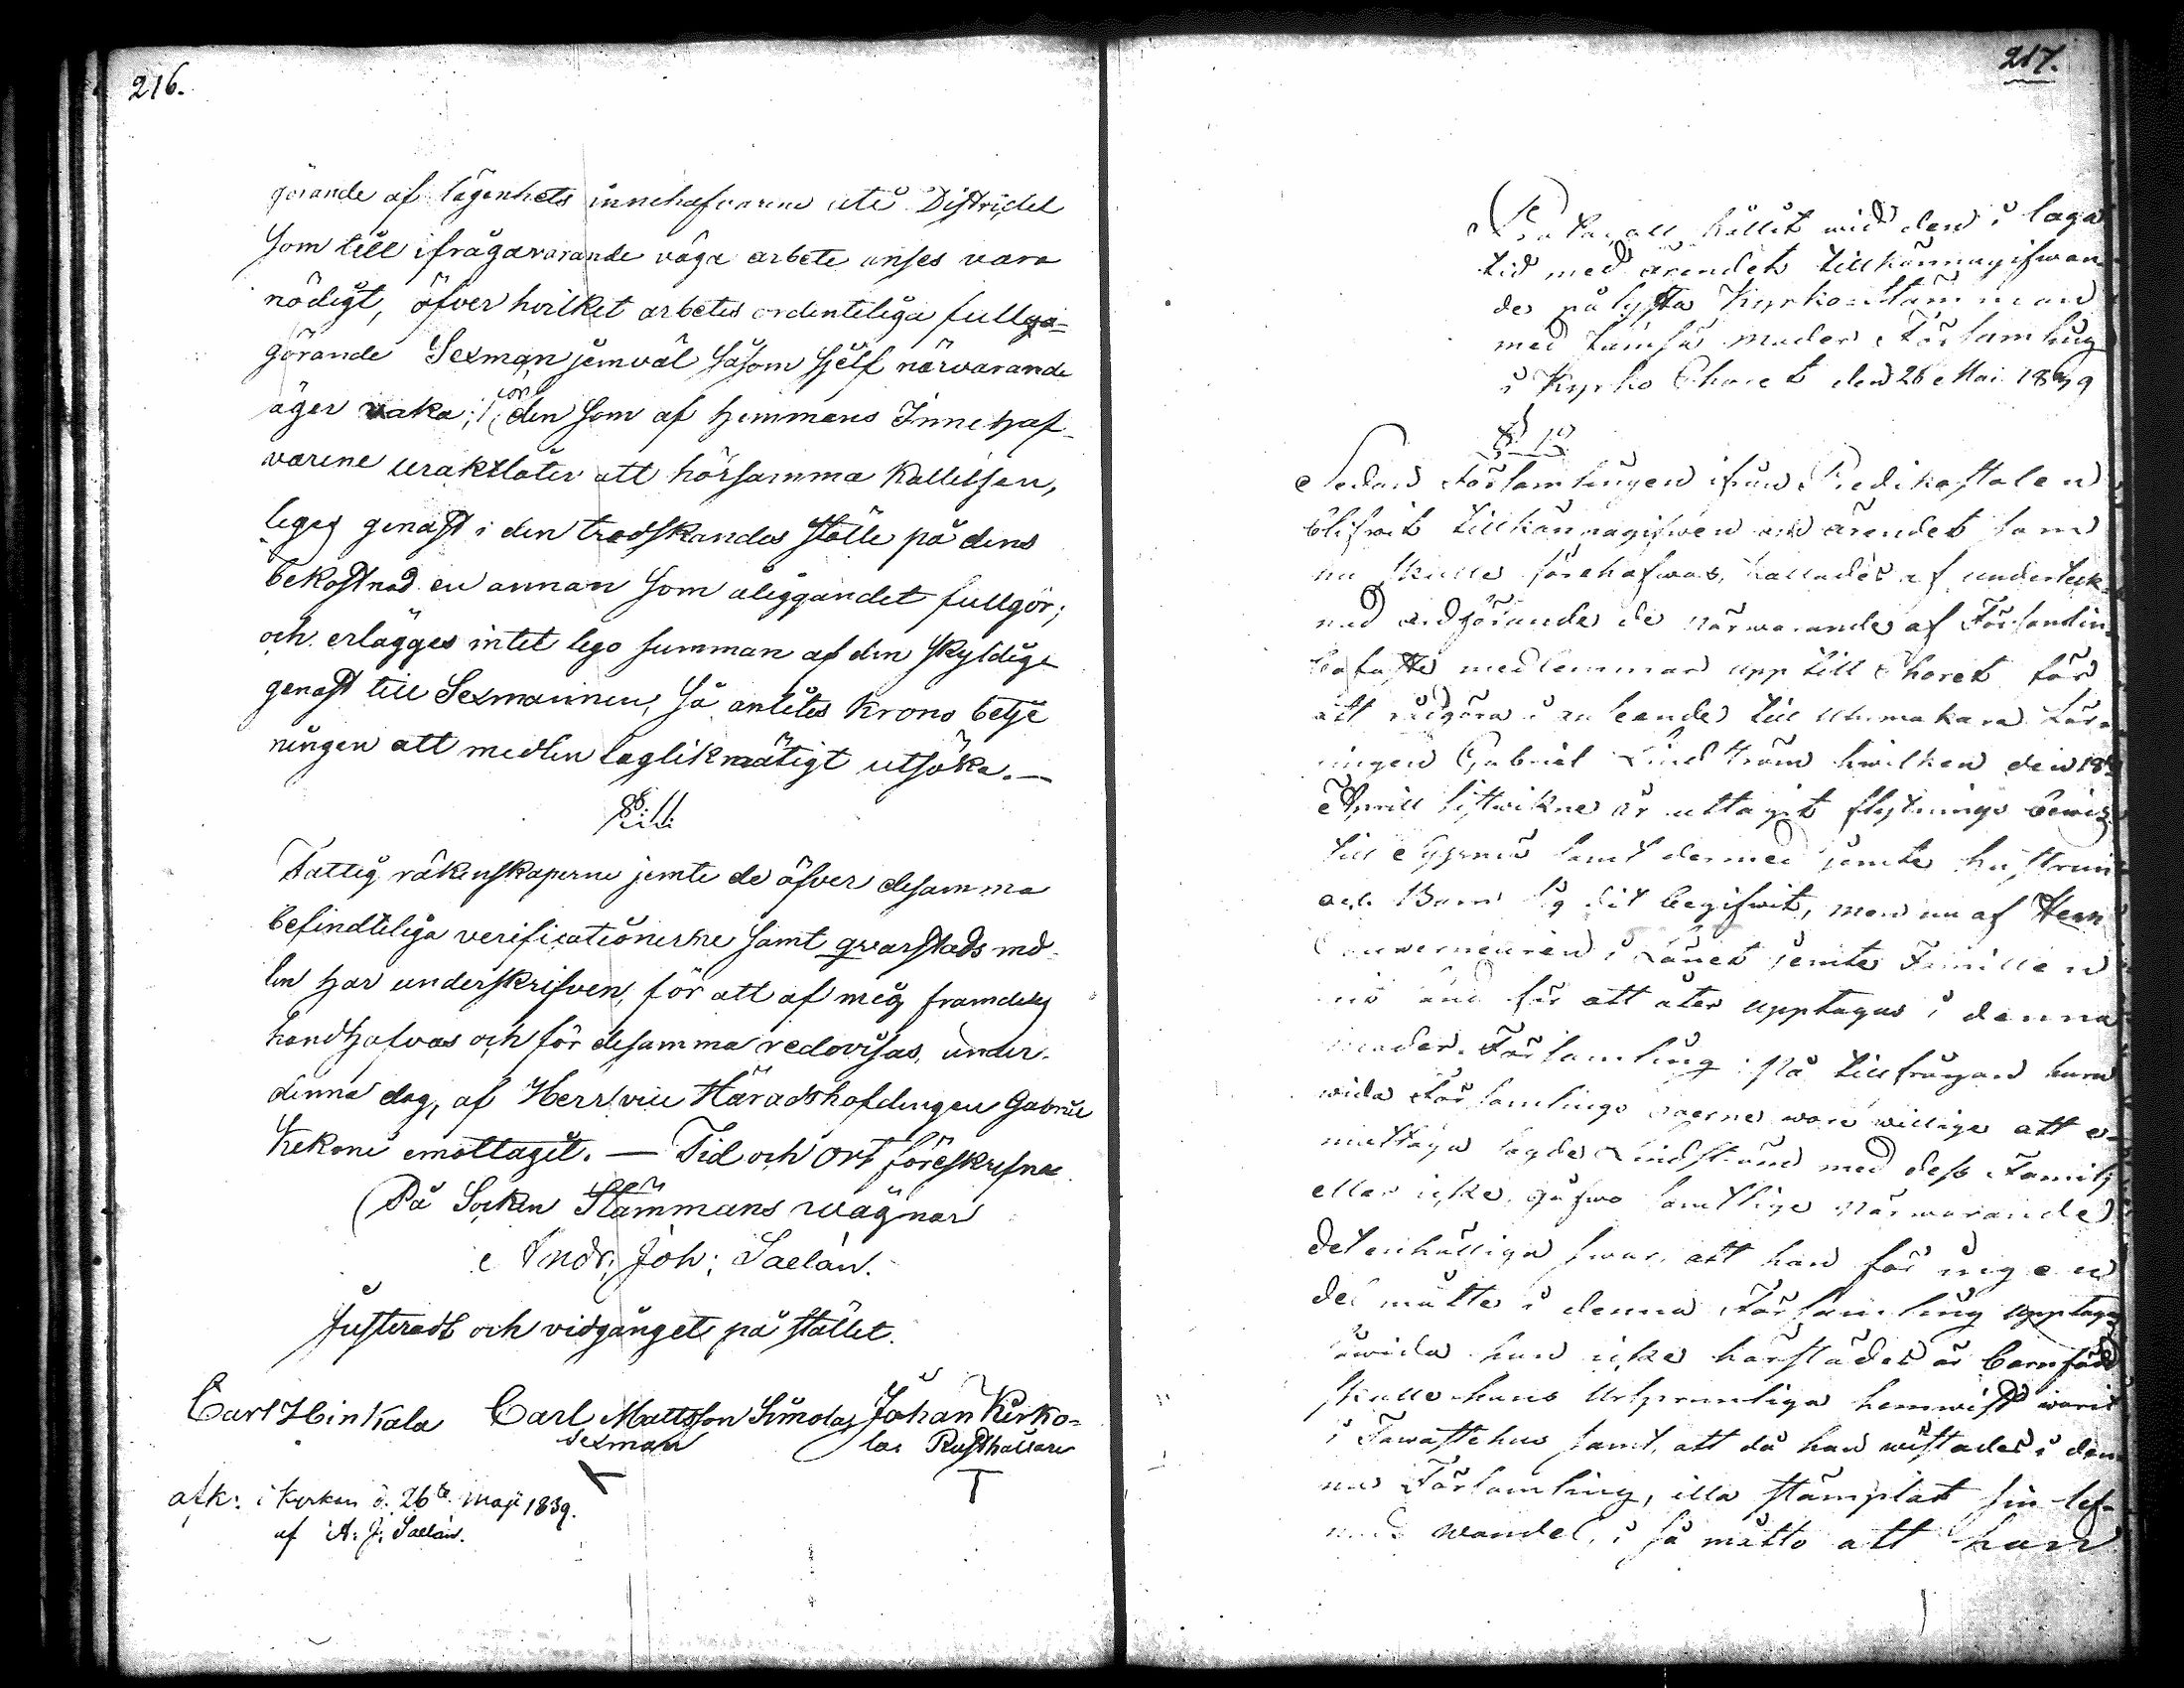 216.
görande af lägenhets innehafvarene uti Districtet
som till ifrågavarande väga arbete anses vara
nödigt, öfver hvilket arbetes ordenteliga fullgö-
görande Sexman jemväl såsom sjelf närvarande
äger vaka; för den som af Hemmans Innehaf-
varene uraktlåter att hörsamma Kallelsen,
leges genast i den tredskandes ställe på dens
bekostnad en annan som åliggandet fullgör;
och erlägges intet lego summan af den skyldige
genast till Sexmannen, så anlites Krono betje
ningen att medlen laglikmätigt utsöka.—
Fattig räkenskaperne jemte de öfver desamma
befindteliga verificationerne samt qvarstads med
len har underskrifven, för att af mig framdeles
handhafvas och för desamma redovisas, under
denna dag, af Herr vice Häradshöfdingen Gabriel
Hekoni emottagit. — Tid och Ort föreskrefne.
På Socken Stämmans vägnar
Andr: Joh: Saelan.
Justeradt och vidgånget på stället.
Carl Hinkala Carl Mattsson Simola Johan Kerko-
sexman la Rusthållare
afk: i Kyrkan d. 26te Maji 1839.
af A. J. Saelan.
217.
Protocoll hållit vid den i laga
tid med ärendets tillkännagifwan-
de pålysta Kyrko-Stämman
med moder Församling
i Kyrko Choret den 26 Mai 1839
§ 1o
Sedan Församlingen ifrån Predikostolen
blifwit tillkännagifwen om ärendet som
nu skulle förehafwas, kallades af underteck-
nad ordförande de närwarande af Församlin-
medlemmar upp till Choret för
att rådgöra i anseende till Uhrmakare Lär-
lingen Gabriel Lindström hwilken den 18
Aprill sistwikne år uttagit flyttnings bewis
till samt dermed jemte hustrun
och Barn sig dit begifwit, men nu af Herr
Gouverneuren i Länet jemte Famillen
för att åter upptagas i denna
moder Församling. På tillfrågan huru
wida Församlings boerne wore willige att e-
mottaga sagde Lindström med dess Familj
eller icke, gåfwo samtlige närwarande
det enhälliga swar, att han för ingen
del måtte i denna Församling upptagas
såwida han icke härstädes är barnfödd
skulle hans Ursprunliga hemwist warit
i Tawastehus samt, att då han wistades i den-
na Församling, illa stämplat sin lef-
nads wandel, i så måtto att han